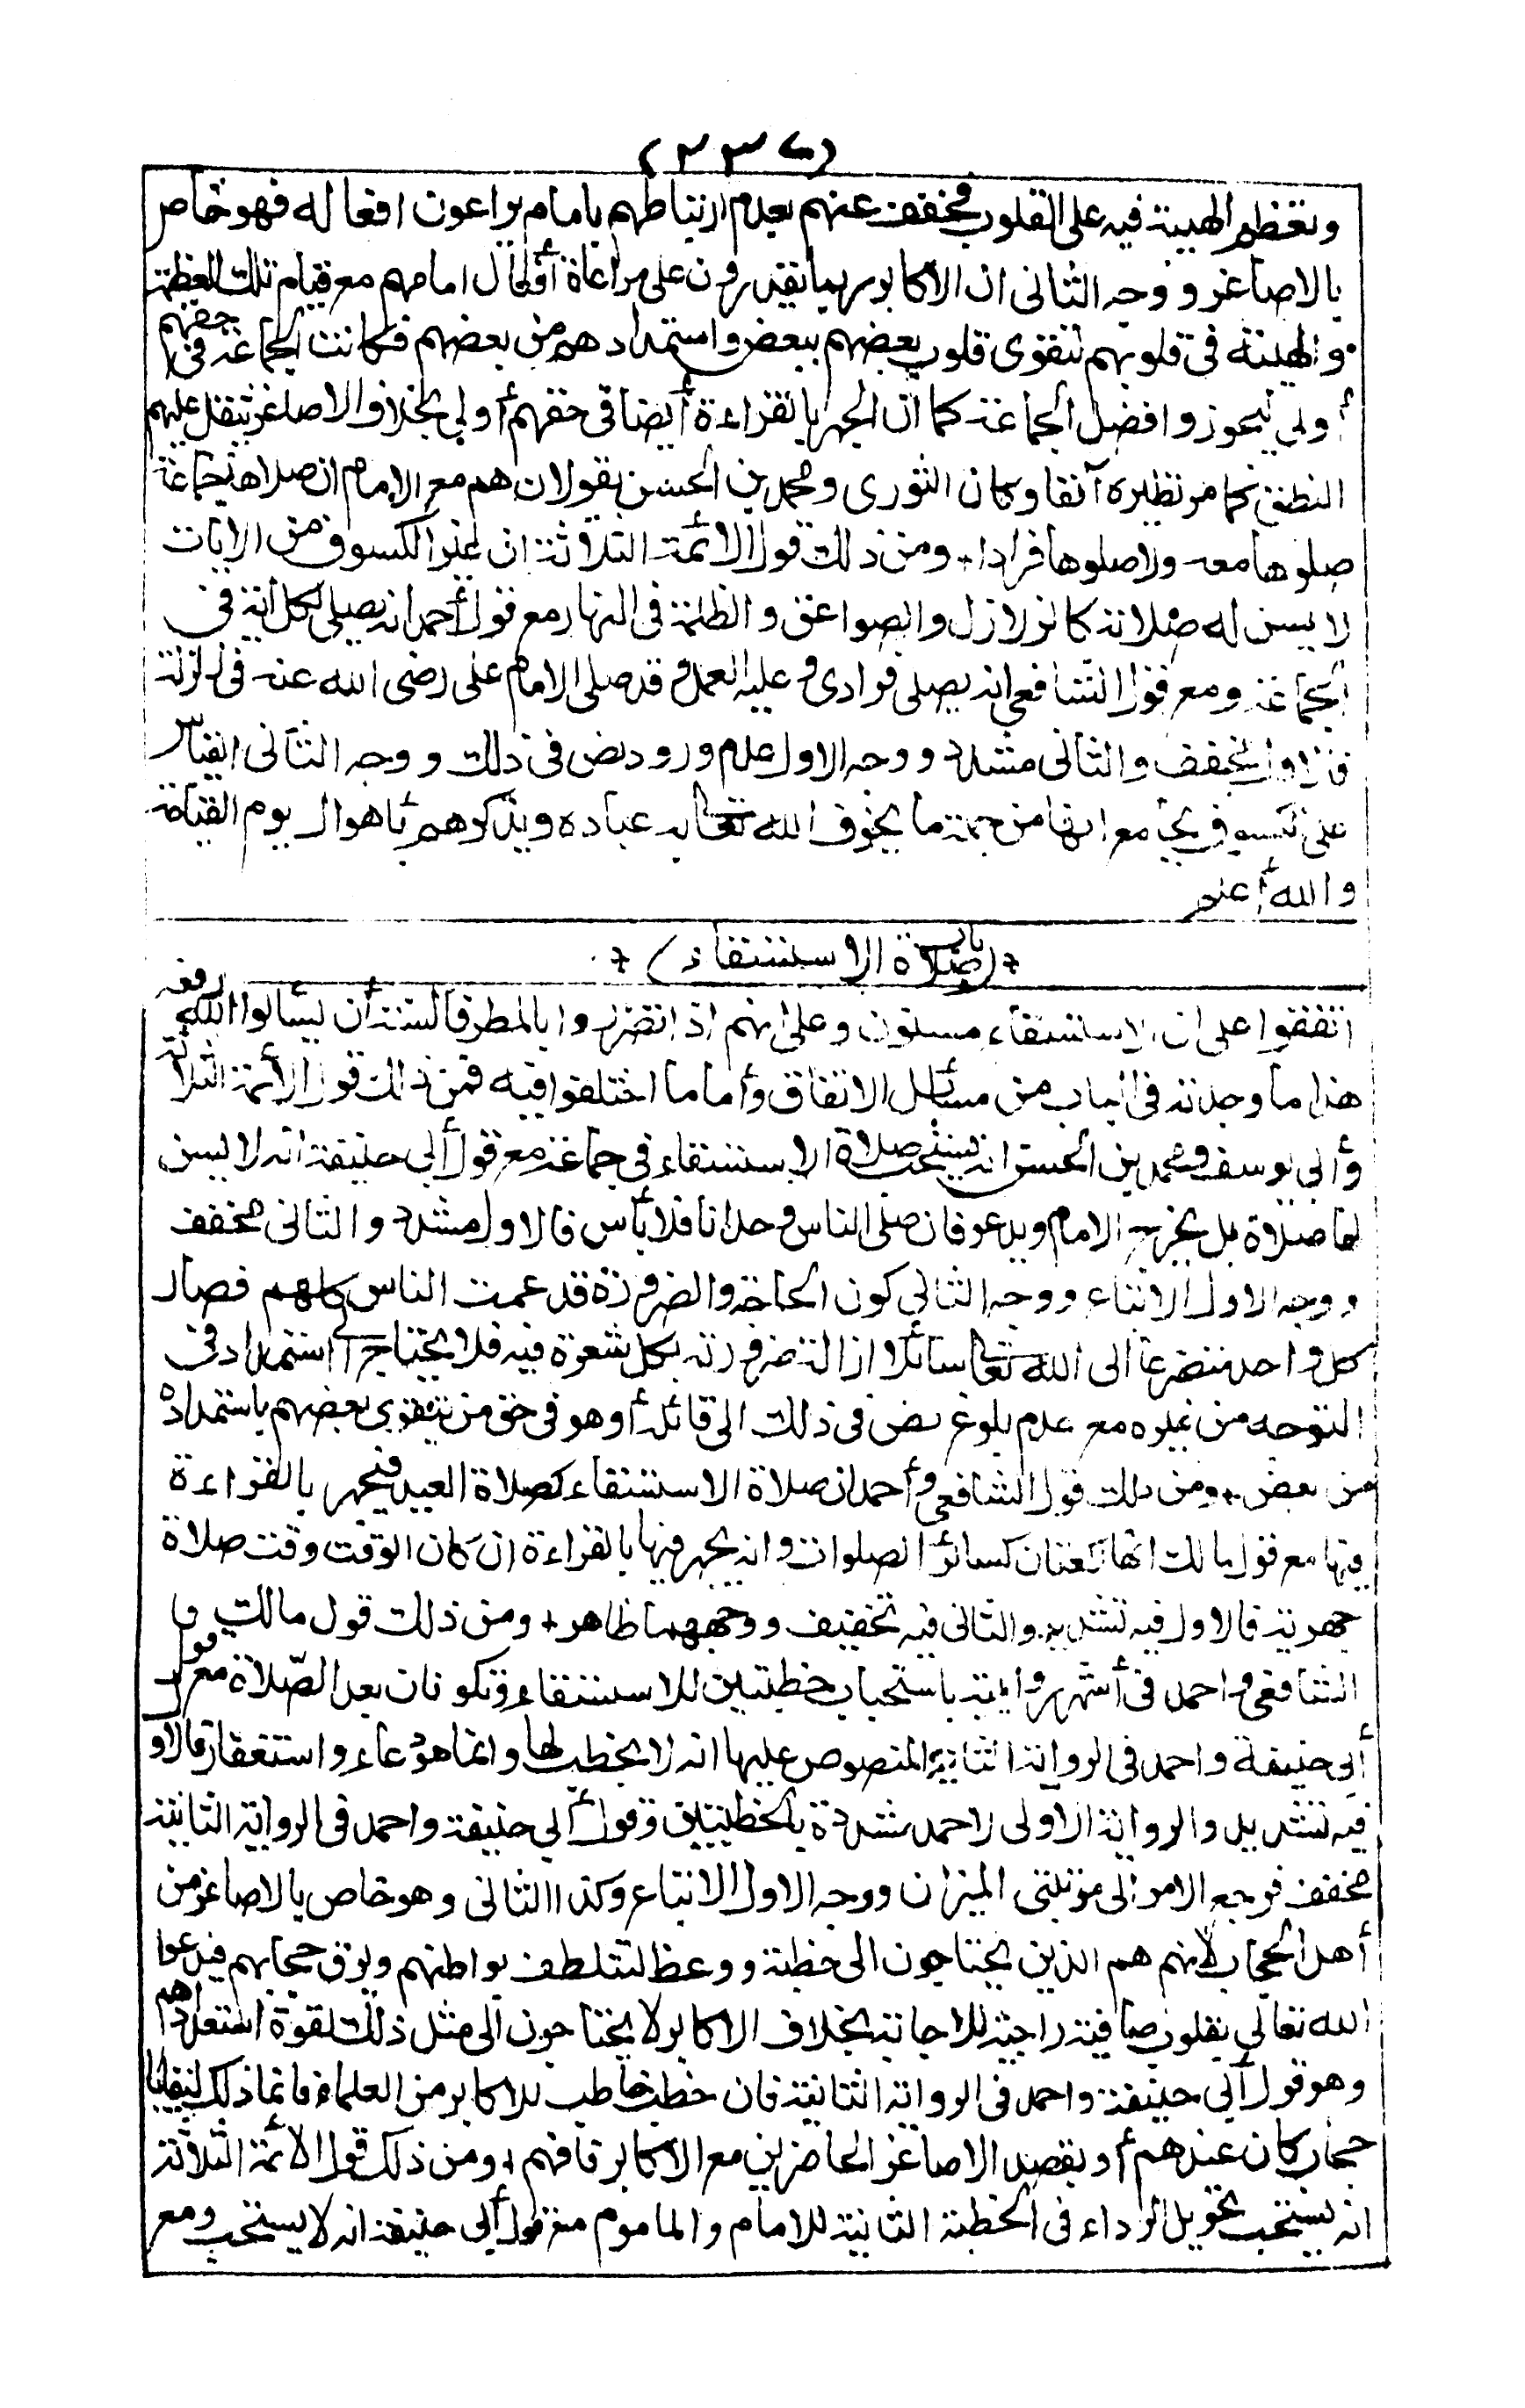 (٢٣٧)
وتعظم الهيبة فيه على القلوب فخفف عنهم بعدم ارتباطهم بامام يراعون افعاله فهو خاص
بالاصاغر ووجه الثانى ان الاكابر ربما يقدرون على مراعاة أفعال امامهم مع قيام تلك العظمة
والهيبة فى قلوبهم لتقوى قلوب بعضهم ببعض واستمدادهم من بعضهم فكانت الجماعة فى حقهم
أولى ليحوزوا فضل الجماعة كما ان الجهر بالقراءة أيضا فى حقهم أولى بخلاف الاصاغر يثقل عليهم
النطق كما مر نظيره آنفا وكان الثورى ومحمد بن الحسن يقولان هم مع الامام ان صلاها جماعة
صلوها معه والا صلوها فرادا + ومن ذلك قول الائمة الثلاثة ان غير الكسوف من الايات
لا يسن له صلاة كالزلازل والصواعق والظلمة فى النهار مع قول أحمد انه يصلى لكل اية فى
الجماعة ومع قول الشافعى انه يصلى فرادى وعليه العمل وقد صلى الامام على رضى الله عنه فى زلزلة
فالاول مخفف والثانى مشدد ووجه الاول عدم ورود نص فى ذلك ووجه الثانى القياس
على الكسوف بجامع انها من جملة ما يخوف الله تعالى به عباده ويذكرهم بأهوال يوم القيامة
والله أعلم
+ (باب صلاة الاستسقاء) +
اتفقوا على ان الاستسقاء مسنون وعلى انهم اذا تضرروا بالمطر فالسنة أن يسألوا الله رفعه
هذا ما وجدته فى الباب من مسائل الاتفاق وأما ما اختلفوا فيه فمن ذلك قول الأئمة الثلاثة
وأبى يوسف ومحمد بن الحسن انه يستحب صلاة الاستسقاء فى جماعة مع قول أبى حنيفة انه لا يسن
لها صلاة بل يخرج الامام ويدعو فان صلى الناس وحدانا فلا بأس فالاول مشدد والثانى مخفف
ووجه الاول الاتباع ووجه الثانى كون الحاجة والضرورة قد عمت الناس كلهم فصار
كل واحد متضرعا الى الله تعالى سائلا ازالة ضرورته بكل شعرة فيه فلا يحتاج الى استمداد فى
التوجه من غيره مع عدم بلوغ نص فى ذلك الى قائله أو هو فى حق من يتقوى بعضهم باستمداده
من بعض + ومن ذلك قول الشافعى وأحمد ان صلاة الاستسقاء كصلاة العيد فيجهر بالقراءة
فيها مع قول مالك انها ركعتان كسائر الصلوات وانه يجهر فيها بالقراءة ان كان الوقت وقت صلاة
جهرية فالاول فيه تشديد والثانى فيه تخفيف ووجههما ظاهر + ومن ذلك قول مالك و
الشافعى واحمد فى أشهر روايتيه باستحباب خطبتين للاستسقاء وتكونان بعد الصلاة مع قول
أبى حنيفة واحمد فى الرواية الثانية المنصوص عليها انه لا يخطب لها وانما هو دعاء واستغفار فالاو
فيه تشديد والرواية الاولى لاحمد مشددة بالخطبتين وقول أبى حنيفة واحمد فى الرواية الثانية
مخفف فرجع الامر الى مرتبتى الميزان ووجه الاول الاتباع وكذا الثانى وهو خاص بالاصاغر من
أهل الحجاب لأنهم هم الذين يحتاجون الى خطبة ووعظ لتتلطف بواطنهم ويرق حجابهم فيدعوا
الله تعالى بقلوب صافية راجية للاجابة بخلاف الاكابر لا يحتاجون الى مثل ذلك لقوة استعدادهم
وهو قول أبى حنيفة واحمد فى الرواية الثانية فان خطب خاطب للاكابر من العلماء فانما ذلك لبقايا
حجاب كان عندهم أو بقصد الاصاغر الحاضرين مع الاكابر فافهم + ومن ذلك قول الأئمة الثلاثة
انه يستحب تحويل الرداء فى الخطبة الثانية للامام والماموم مع قول أبى حنيفة انه لا يستحب ومع